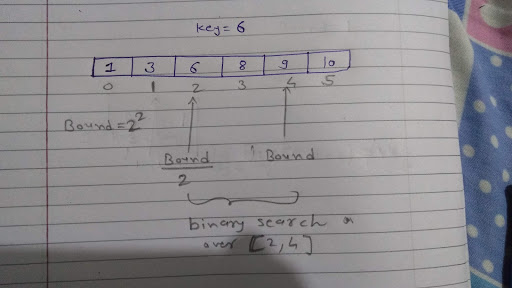 key = 6
1 3 6 8 9 10
0 1 2 3 4 5
Bound = 2²
Bound Bound
2
binary search
over [2, 4]